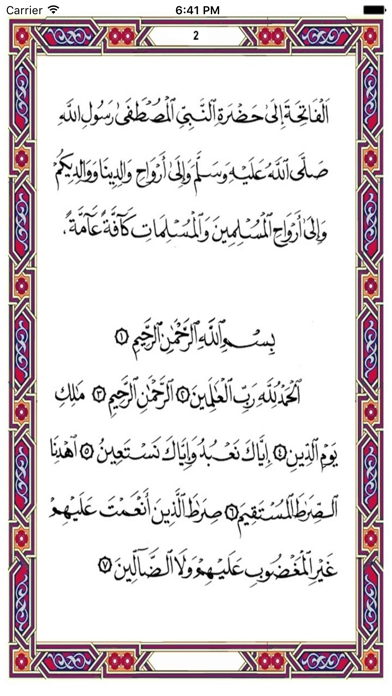 Carrier 6:41 PM
2
اَلْفَاتِحَةَ إِلَى حَضْرَةِ النَّبِيِّ الْمُصْطَفَى رَسُولِ اللَّهِ
صَلَّى اللَّهُ عَلَيْهِ وَسَلَّمَ وَإِلَى أَرْوَاحِ وَالِدِينَا وَوَالِدِيكُمْ
وَإِلَى أَرْوَاحِ الْمُسْلِمِينَ وَالْمُسْلِمَاتِ كَآفَّةً عَآمَّةً.
بِسْمِ اللَّهِ الرَّحْمَٰنِ الرَّحِيمِ ١
الْحَمْدُ لِلَّهِ رَبِّ الْعَالَمِينَ ٢ الرَّحْمَٰنِ الرَّحِيمِ ٣ مَالِكِ
يَوْمِ الدِّينِ ٤ إِيَّاكَ نَعْبُدُ وَإِيَّاكَ نَسْتَعِينُ ٥ اهْدِنَا
الصِّرَاطَ الْمُسْتَقِيمَ ٦ صِرَاطَ الَّذِينَ أَنْعَمْتَ عَلَيْهِمْ
غَيْرِ الْمَغْضُوبِ عَلَيْهِمْ وَلَا الضَّآلِّينَ ٧
2